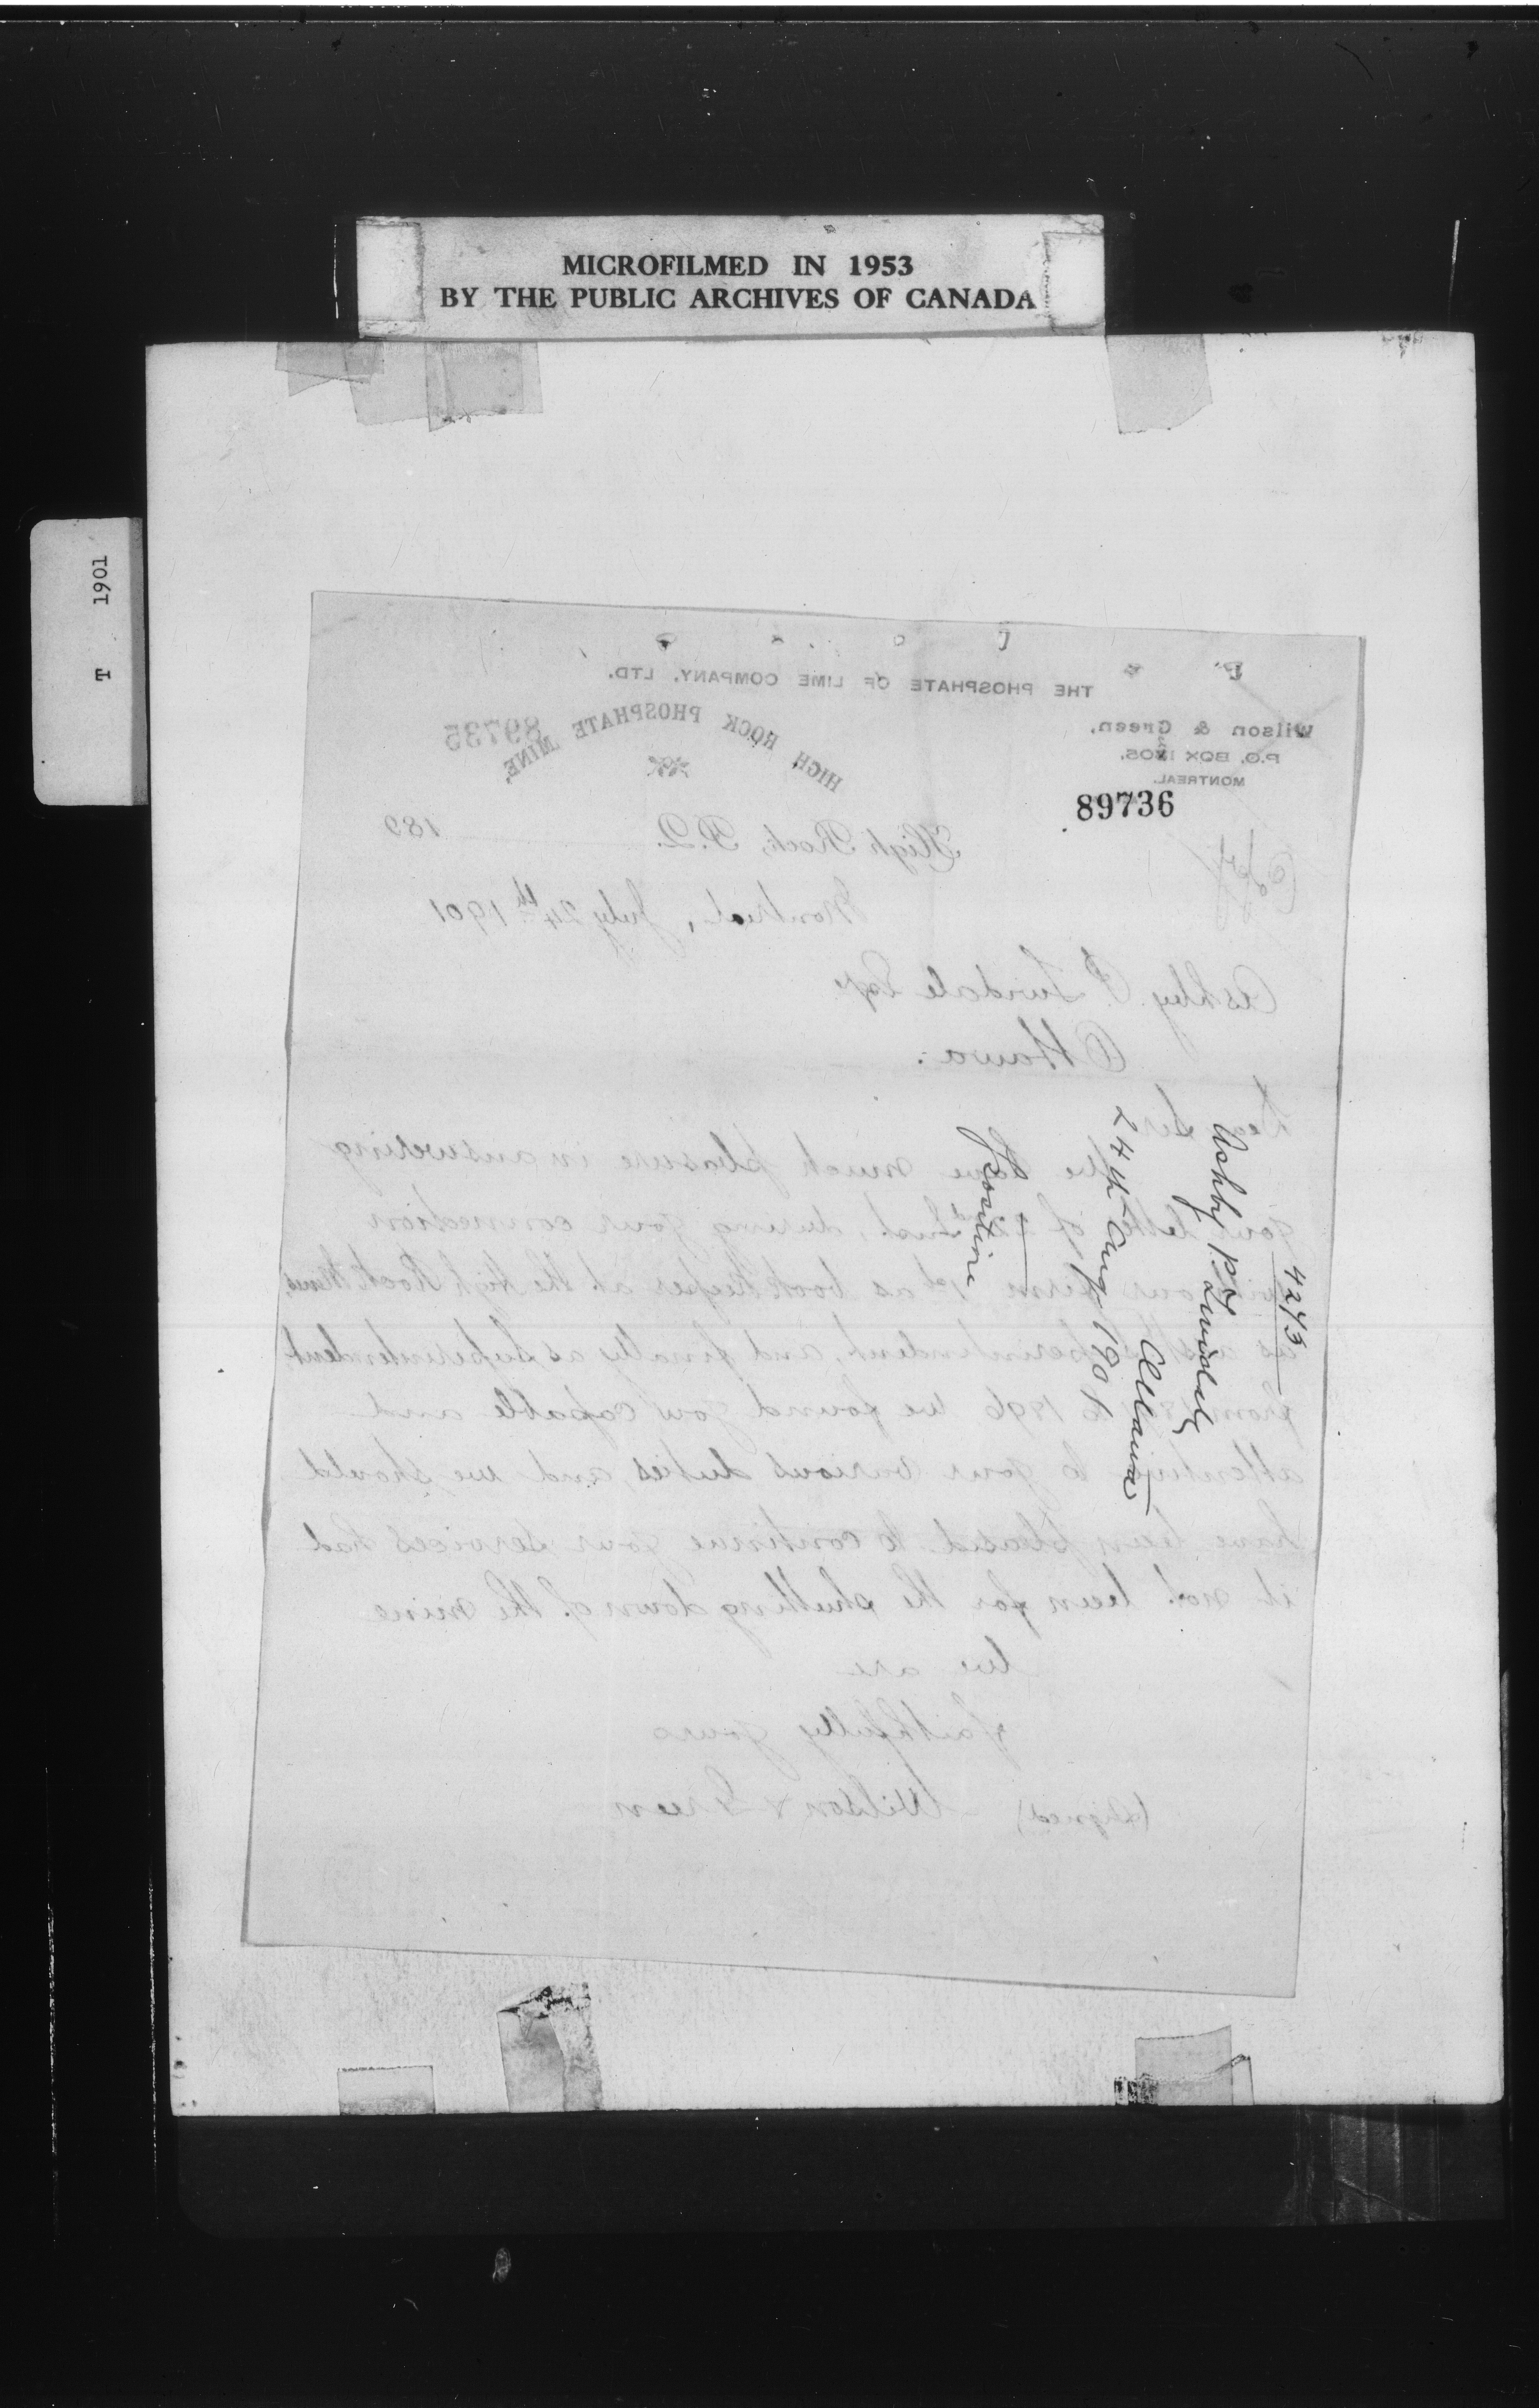 MICROFILMED IN 1953
BY THE PUBLIC ARCHIVES OF CANADA
T 1901
THE PHOSPHATE OF LIME COMPANY, LTD.
HIGH ROCK PHOSPHATE MINE,
89735
Wilson & Green,
P.O. BOX
MONTREAL.
89736
High Rock, P.Q. 189
Copy
Montreal, July 24th 1901
Ashby P. Twidale Esqr
Ottawa.
Dear Sir
We have much pleasure in answering
your letter of inst, during your connection
with our firm 1st as book keeper at the High Rock Mine,
as asst superintendent, and finally as Superintendent
from to 1896 we found you capable and
attentive to your various duties, and we should
have been pleased to continue your services had
it not been for the shutting down of the mine
We are
faithfully yours
(Signed) Wilson & Green
4243
Ashby P. Twidale
Ottawa
24th Aug 1901
Position